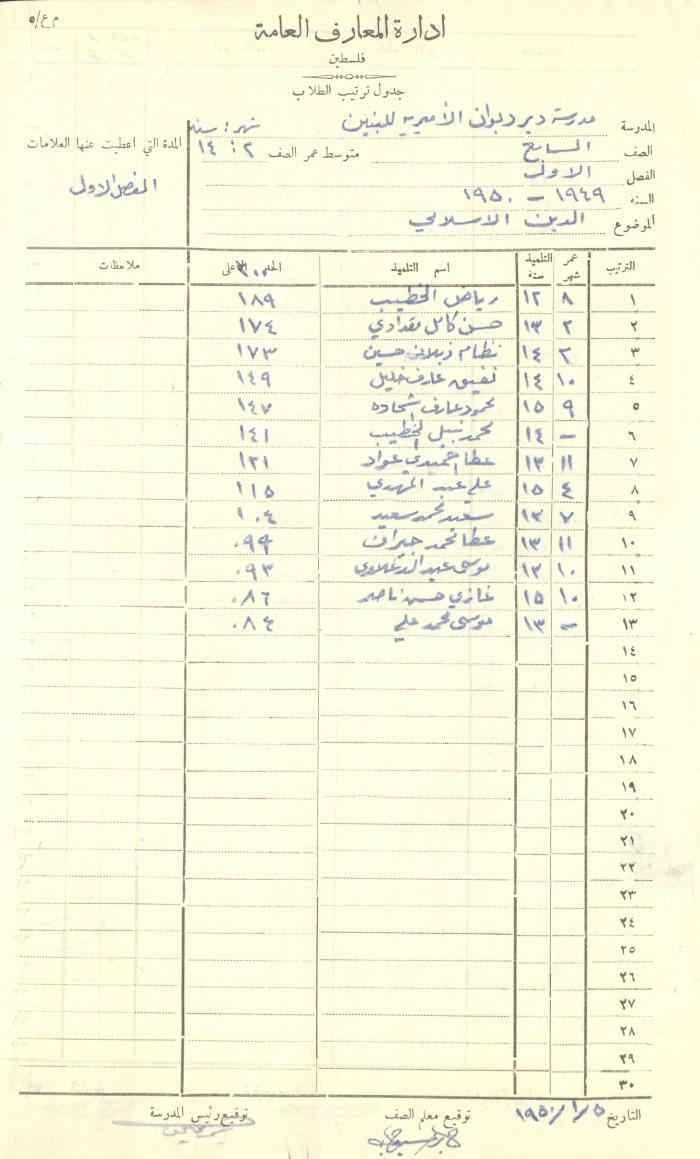 م ع/٥
ادارة المعارف العامة
فلسطين
جدول ترتيب الطلاب
المدرسة مدرسة دير دبوان الأميرية للبنين
الصف السابع متوسط عمر الصف شهر: سنه ١٤:٢
الفصل الاول
السنة ١٩٤٩ - ١٩٥٠
الموضوع الدين الاسلامي
المدة التي اعطيت عنها العلامات
الفصل الاول
الترتيب عمر التلميذ شهر سنة اسم التلميذ الحد الاعلى ٢٠٠ ملاحظات
١ ٨ ١٢ رياض الخطيب ١٨٩
٢ ٢ ١٣ حسن كامل مقدادي ١٧٤
٣ ٢ ١٤ نظام حسين ١٧٣
٤ ١٠ ١٤ عارف خليل ١٤٩
٥ ٩ ١٥ محمود عارف شحاده ١٤٧
٦ - ١٤ محمد نبيل الخطيب ١٤١
٧ ١١ ١٣ عطا عواد ١٢١
٨ ٤ ١٥ علي عبد المهدي ١١٥
٩ ٧ ١٣ سعيد محمد سعيد ١٠٤
١٠ ١١ ١٣ عطا محمد جبران ٠٩٩
١١ ١٠ ١٣ موسى ٠٩٣
١٢ ١٠ ١٥ غازي حسن ناصر ٠٨٦
١٣ - ١٣ موسى محمد علي ٠٨٤
١٤
١٥
١٦
١٧
١٨
١٩
٢٠
٢١
٢٢
٢٣
٢٤
٢٥
٢٦
٢٧
٢٨
٢٩
٣٠
التاريخ ١٩٥٠/١/٥ توقيع معلم الصف توقيع رئيس المدرسة